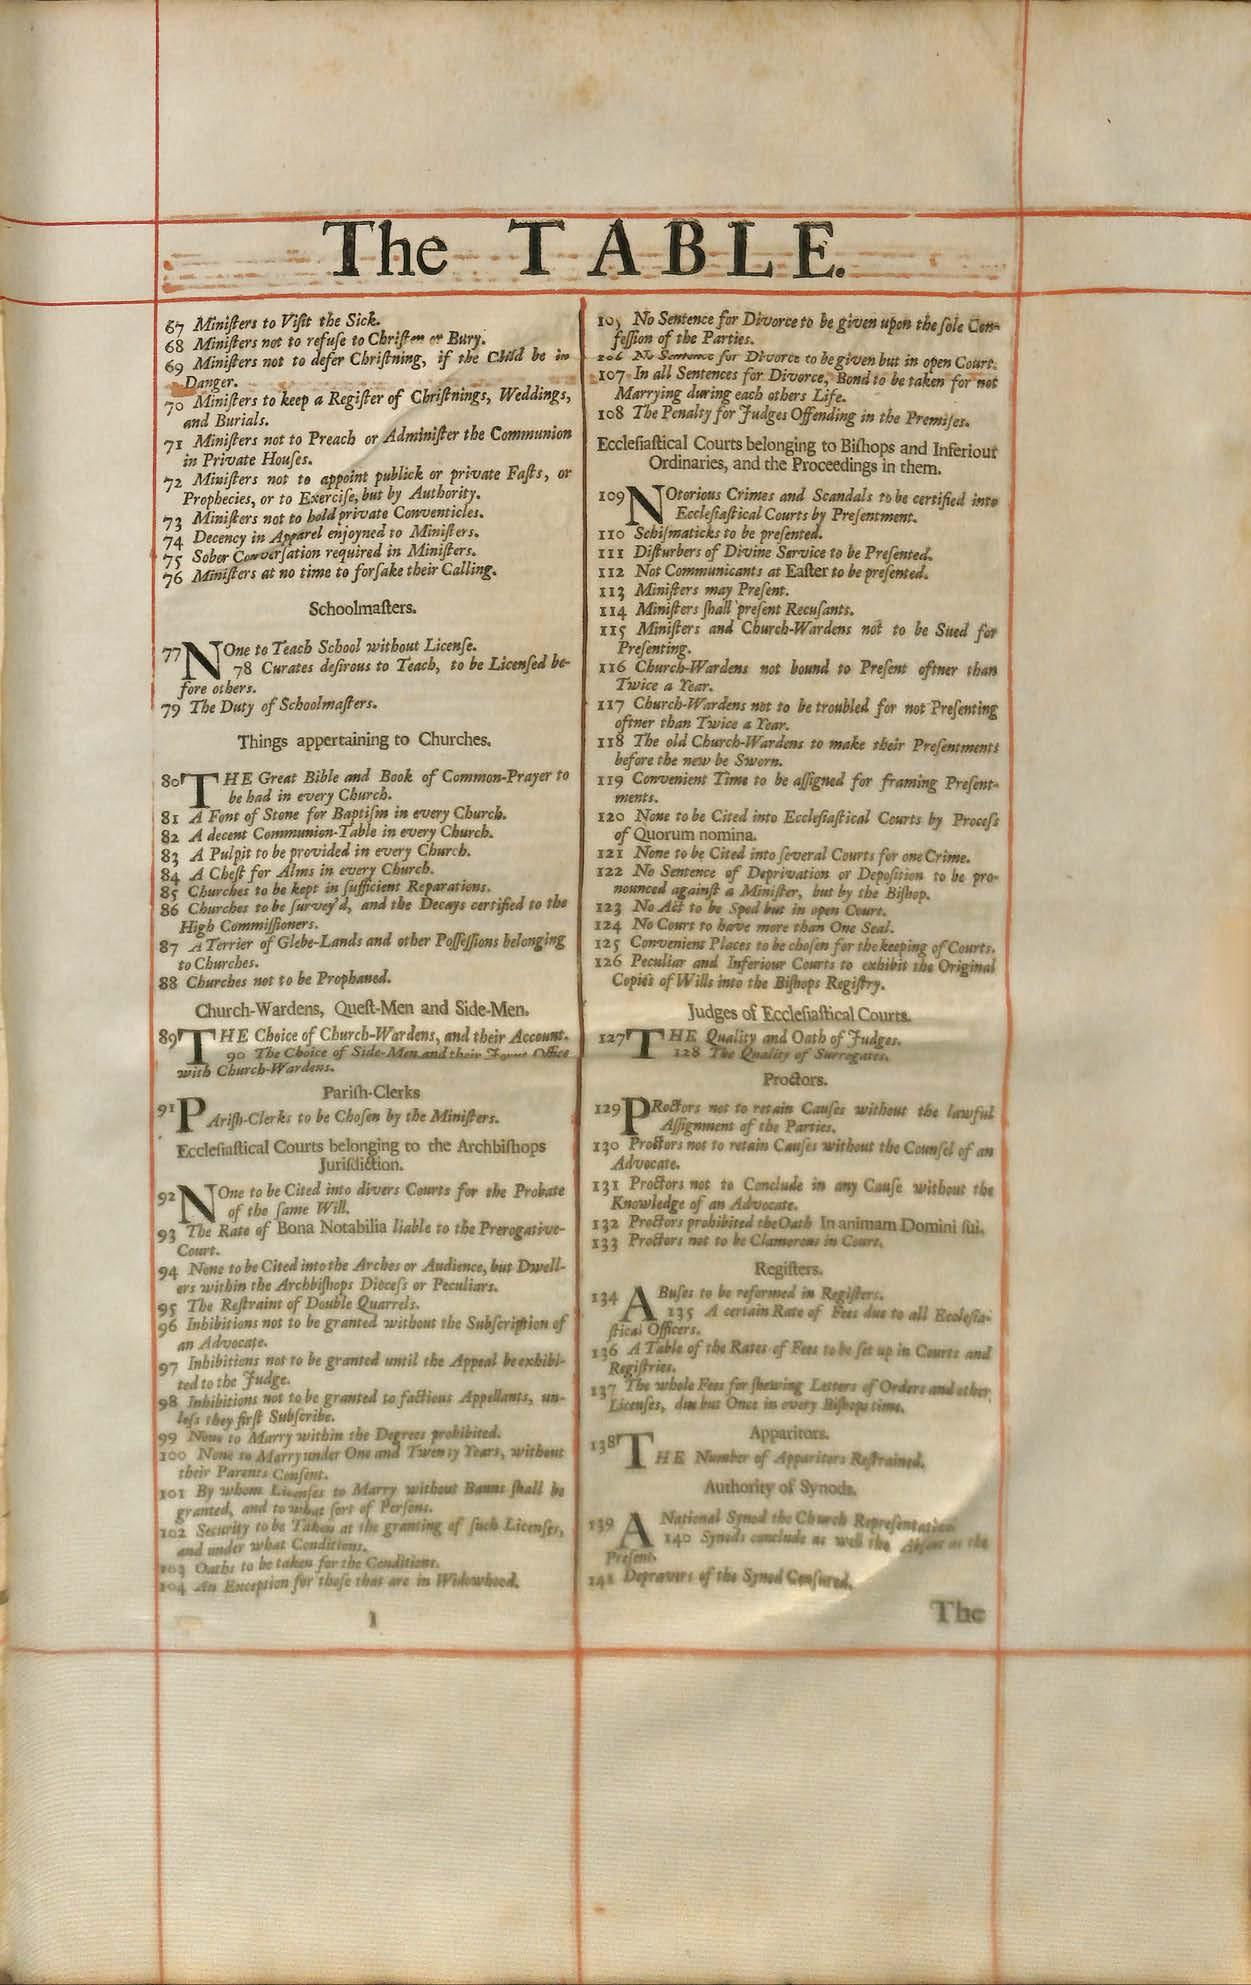 The TABLE.
67 Miniſters to Viſit the Sick.
68 Miniſters not to refuſe to Chriſten or Bury.
69 Miniſters not to defer Chriſtning, if the Child be in
Danger.
70 Miniſters to keep a Regiſter of Chriſtnings, Weddings,
and Burials.
71 Miniſters not to Preach or Adminiſter the Communion
in Private Houſes.
72 Miniſters not to appoint publick or private Faſts, or
Prophecies, or to Exerciſe, but by Authority.
73 Miniſters not to hold private Conventicles.
74 Decency in Apparel enjoyned to Miniſters.
75 Sober Converſation required in Miniſters.
76 Miniſters at no time to forſake their Calling.
Schoolmaſters.
77 NOne to Teach School without Licenſe.
78 Curates deſirous to Teach, to be Licenſed be-
fore others.
79 The Duty of Schoolmaſters.
Things appertaining to Churches.
80 THE Great Bible and Book of Common-Prayer to
be had in every Church.
81 A Font of Stone for Baptiſm in every Church.
82 A decent Communion-Table in every Church.
83 A Pulpit to be provided in every Church.
84 A Cheſt for Alms in every Church.
85 Churches to be kept in ſufficient Reparations.
86 Churches to be ſurvey'd, and the Decays certified to the
High Commiſſioners.
87 A Terrier of Glebe-Lands and other Poſſeſſions belonging
to Churches.
88 Churches not to be Prophaned.
Church-Wardens, Queſt-Men and Side-Men.
89 THE Choice of Church-Wardens, and their Account.
90 The Choice of Side-Men and their Joynt Office
with Church-Wardens.
Pariſh-Clerks
91 PAriſh-Clerks to be Choſen by the Miniſters.
Eccleſiaſtical Courts belonging to the Archbiſhops
Juriſdiction.
92 NOne to be Cited into divers Courts for the Probate
of the ſame Will.
93 The Rate of Bona Notabilia liable to the Prerogative-
Court.
94 None to be Cited into the Arches or Audience, but Dwell-
ers within the Archbiſhops Dioceſs or Peculiars.
95 The Reſtraint of Double Quarrels.
96 Inhibitions not to be granted without the Subſcription of
an Advocate.
97 Inhibitions not to be granted until the Appeal be exhibi-
ted to the Judge.
98 Inhibitions not to be granted to factious Appellants, un-
leſs they firſt Subſcribe.
99 None to Marry within the Degrees prohibited.
100 None to Marry under One and Twenty Years, without
their Parents Conſent.
101 By whom Licenſes to Marry without Banns ſhall be
granted, and to what ſort of Perſons.
102 Security to be Taken at the granting of ſuch Licenſes,
and under what Conditions.
103 Oaths to be taken for the Conditions.
104 An Exception for thoſe that are in Widowhood.
1
105 No Sentence for Divorce to be given upon the ſole Con-
feſſion of the Parties.
106 No Sentence for Divorce to be given but in open Court.
107 In all Sentences for Divorce, Bond to be taken for not
Marrying during each others Life.
108 The Penalty for Judges Offending in the Premiſes.
Eccleſiaſtical Courts belonging to Biſhops and Inferiour
Ordinaries, and the Proceedings in them.
109 NOtorious Crimes and Scandals to be certified into
Eccleſiaſtical Courts by Preſentment.
110 Schiſmaticks to be preſented.
111 Diſturbers of Divine Service to be Preſented.
112 Not Communicants at Eaſter to be preſented.
113 Miniſters may Preſent.
114 Miniſters ſhall preſent Recuſants.
115 Miniſters and Church-Wardens not to be Sued for
Preſenting.
116 Church-Wardens not bound to Preſent oftner than
Twice a Year.
117 Church-Wardens not to be troubled for not Preſenting
oftner than Twice a Year.
118 The old Church-Wardens to make their Preſentments
before the new be Sworn.
119 Convenient Time to be aſſigned for framing Preſent-
ments.
120 None to be Cited into Eccleſiaſtical Courts by Proceſs
of Quorum nomina.
121 None to be Cited into ſeveral Courts for one Crime.
122 No Sentence of Deprivation or Depoſition to be pro-
nounced againſt a Miniſter, but by the Biſhop.
123 No Act to be Sped but in open Court.
124 No Court to have more than One Seal.
125 Convenient Places to be choſen for the keeping of Courts.
126 Peculiar and Inferiour Courts to exhibit the Original
Copies of Wills into the Biſhops Regiſtry.
Judges of Eccleſiaſtical Courts.
127 THE Quality and Oath of Judges.
128 The Quality of Surrogates.
Proctors.
129 PRoctors not to retain Cauſes without the lawful
Aſſignment of the Parties.
130 Proctors not to retain Cauſes without the Counſel of an
Advocate.
131 Proctors not to Conclude in any Cauſe without the
Knowledge of an Advocate.
132 Proctors prohibited the Oath In animam Domini ſui.
133 Proctors not to be Clamorous in Court.
Regiſters.
134 ABuſes to be reformed in Regiſters.
135 A certain Rate of Fees due to all Eccleſia-
ſtical Officers.
136 A Table of the Rates of Fees to be ſet up in Courts and
Regiſtries.
137 The whole Fees for ſhewing Letters of Orders and other
Licenſes, due but Once in every Biſhops time.
Apparitors.
138 THE Number of Apparitors Reſtrained.
Authority of Synods.
139 A National Synod the Church Repreſentative.
140 Synods conclude as well the Abſent as the
Preſent.
141 Depravers of the Synod Cenſured.
The